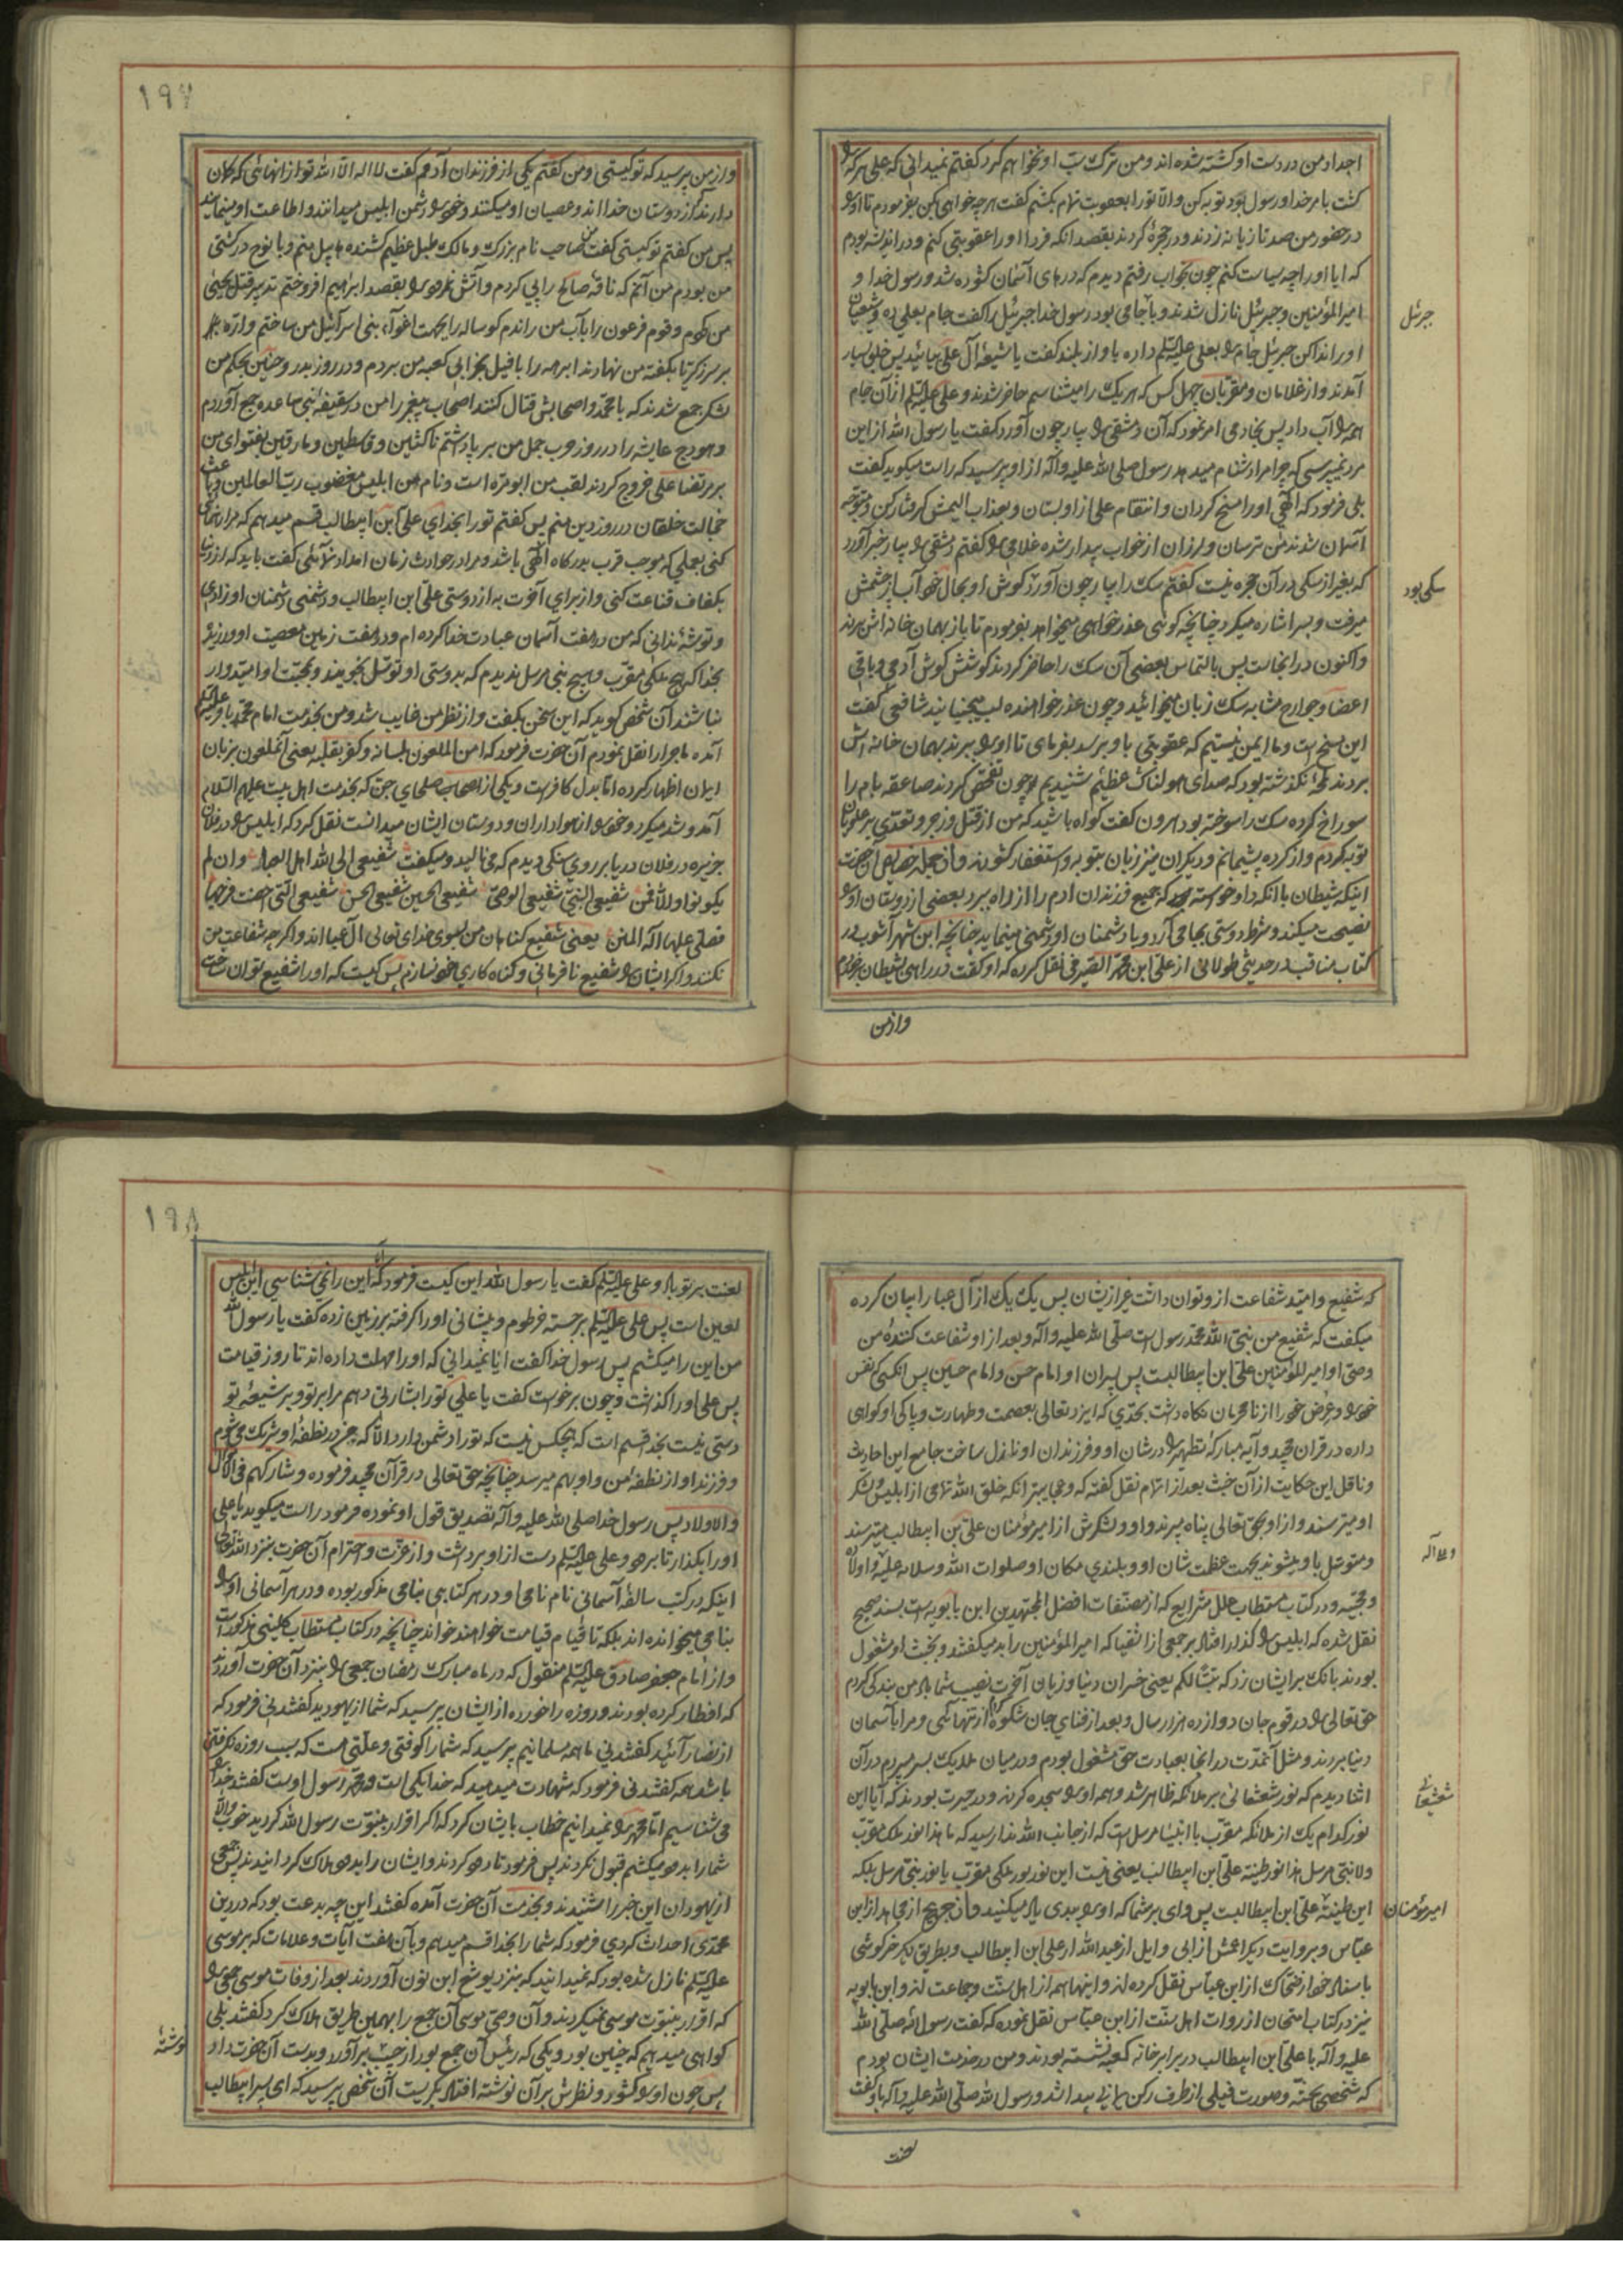 اجداد من در دست او کشته شده اند و من ترک سب او نخواهم کرد گفتم نمیدانی که علی هر که را
کشت بامر خدا و رسول بود توبه کن و الا تو را بعقوبت تمام بکشم گفت هر چه خواهی کن بفرمودم تا او را
در حضور من صد تازیانه زدند و در حجرۀ کردند بقصد انکه فردا او را عقوبتی کنم و در اندیشه بودم
که ایا او را چه سیاست کنم چون بخواب رفتم دیدم که درهای آسمان کشوده شد و رسول خدا و
امیر المؤمنین و جبرئیل نازل شدند و با جامی بود رسول خدا جبرئیل را گفت جام بعلی ده و شیعیان
جبرئیل
او را ندا کن جبرئیل جام را بعلی علیه السلم داده باواز بلند گفت یا شیعۀ آل علی بیائید پس خلق بسیار
آمدند و از غلامان و مقربان چهل کس که هر یک را میشناسم حاضر شدند و علی علیه السلم از آن جام
همه را آب داد پس بخادمی امر نمود که آن دمشقی را بیار چون آورد گفت یا رسول الله از این
مرد نمیپرسی که چرا مرا دشنام میدهد رسول صلی الله علیه و آله از او پرسید که راست میکوید گفت
بلی فرمود که الهی او را مسخ کردان و انتقام علی از او بستان و بعذاب الیمش کرفتار کن و متوجه
آسمان شدند من ترسان و لرزان از خواب بیدار شده غلامی را گفتم دمشقی را بیار خبر آورد
که بغیر از سکی در آن حجره نیست گفتم سک را بیار چون آورد کوش او بحال خود آب از چشمش
سکی بود
میرفت و بسر اشاره میکرد چنانچه کوئی عذر خواهی میخواهد بفرمودم تا باز بهمان خانه اش برند
و اکنون در انجاست پس بالتماس بعضی آن سک را حاضر کردند کوشش کوش آدمی و باقی
اعضا و جوارح مشابه سک زبان میخوائید و چون عذر خواهنده لب میجنبانید شافعی گفت
این مسخ است و ما ایمن نیستیم که عقوبتی باو برسد بفرمای تا او را ببرند بهمان خانه اش
بردند لمحۀ نگذشته بود که صدای هولناک عظیم شنیدیم و چون تفحص کردند صاعقه بام را
سوراخ کرده سک را سوخته بود هرون گفت کواه باشید که من از قتل و زجر و تعدی بر علویان
توبه کردم و از کرده پشیمانم و دیکران نیز زبان بتوبه و استغفار کشودند و از جمله خصایص آن حضرت
اینکه شیطان با انکه داو خواسته که جمیع فرزندان ادم را از راه ببرد بعضی از دوستان او را
نصیحت میکند و شرط دوستی بجا می آرد و با دشمنان او دشمنی مینماید چنانچه ابن شهرآشوب در
کتاب مناقب در حدیثی طولانی از علی ابن محمد الصیرفی نقل کرده که او گفت در راهی بشیطان برخوردم
و از من

۱۹۷
و از من پرسید که تو کیستی و من گفتم یکی از فرزندان آدمم گفت لا اله الا الله تو از انهائی که کمان
دارند که از دوستان خدا اند و عصیان او میکنند و خود را دشمن ابلیس میدانند و اطاعت او مینمایند
پس من گفتم تو کیستی گفت من صاحب نام بزرک و مالک طبل عظیم کشنده هابیل منم و با نوح در کشتی
من بودم من آنم که ناقۀ صالح را پی کردم و آتش نمرود را بقصد ابراهیم افروختم تدبیر قتل یحیی
من کردم و قوم فرعون را باب من راندم کوساله را بجهت اغواء بنی اسرائیل من ساختم و اره
بر سر زکریا بگفته من نهادند ابرهه را با فیل بخرابی کعبه من بردم و در روز بدر و حنین بحکم من
لشکر جمع شدند که با محمد و اصحابش قتال کنند اصحاب پیغمبر را من در سقیفه بنی ساعده جمع آوردم
و هودج عایشه را در روز حرب جمل من بر پا داشتم ناکثین و قاسطین و مارقین بفتوای من
بر مرتضا علی خروج کردند لقب من ابومره است و نام من ابلیس مغضوب رب العالمین و باعث
خجالت خلقان در روز دین منم پس گفتم تو را بخدای علی ابن ابیطالب قسم میدهم که مرا رهنمائی
کنی بعملی که موجب قرب بدرکاه الهی باشد و مرا در حوادث زمان امداد نمائی گفت باید که از دنیا
بکفاف قناعت کنی و از برای آخرت به از دوستی علی ابن ابیطالب و دشمنی دشمنان او زادی
و توشۀ ندانی که من در هفت آسمان عبادت خدا کرده ام و در هفت زمین معصیت او ورزیده
بخدا که هیچ ملکی مقرب و هیچ بنی مرسل ندیدم که بدوستی او توسل نجویند و بمحبت او امیدوار
نباشند آن شخص کوید که این سخن بگفت و از نظر من غایب شد و من بخدمت امام محمد باقر علیه السلم
آمده ماجرا را نقل نمودم آن حضرت فرمود که امن الملعون بلسانه و کفر بقلبه یعنی آنملعون بزبان
ایمان اظهار کرده اما بدل کافر است و یکی از اصحاب صلحای جن که بخدمت اهل بیت علیهم السلام
آمد و شد میکرد و خود را از هواداران و دوستان ایشان میدانست نقل کرد که ابلیس را در فلان
جزیره در فلان دریا بر روی سنکی دیدم که می نالید و میکفت شفیعی الی الله اهل العبا و ان لم
یکونوا والا فمن شفیعی النبی شفیعی الوصی شفیعی الحسین شفیعی الحسن شفیعی التی احصنت فرجها
فصلی علیها اله المنن یعنی شفیع کناهان من بسوی خدای تعالی آل عبا اند و اکر چه شفاعت من
نکنند و اکر ایشان را شفیع نافرمانی و کناه کاری خود نسازم پس کیست که او را شفیع توان ساخت

که شفیع و امید شفاعت ازو توان داشت غیر از یشان پس یک یک از آل عبا را بیان کرده
میکفت که شفیع من نبی الله محمد رسول است صلی الله علیه و اله و بعد از او شفاعت کنندۀ من
وصی او امیر المؤمنین علی ابن ابیطالبست پس پسران او امام حسن و امام حسین پس انکسی که نفس
خود و عرض خود را از نامحرمان نکاه داشت بحدی که ایزد تعالی بعصمت و طهارت و پاکی او کواهی
داده در قران مجید و آیه مبارکۀ تطهیر را در شان او و فرزندان او نازل ساخت جامع این احادیث
و ناقل این حکایت از آن خبث بعد از اتمام نقل گفته که و عجایبتر انکه خلق الله تمامی از ابلیس و لشکر
او میترسند و از او بحق تعالی پناه میبرند و او و لشکرش از امیر مؤمنان علی بن ابیطالب میترسند
و متوسل باو میشوند بجهت عظمت شان او و بلندی مکان او صلوات الله و سلامه علیه و اولاده
و علی آله
و محبیه و در کتاب مستطاب علل شرایع که از مصنفات افضل المجتهدین ابن بابویه است بسند صحیح
نقل شده که ابلیس را کذار افتاد بر جمعی از اشقیا که امیر المؤمنین را بد میکفتند و بخبث او مشغول
بودند بانک بر ایشان زد که تبا لکم یعنی خسران دنیا و زیان آخرت نصیب شما باد من بندکی کردم
حق تعالی را در قوم جان دوازده هزار سال و بعد از فنای جان شکوه کردم از تنهائی و مرا بآسمان
دنیا بردند و مثل آنمدت در انجا بعبادت حق مشغول بودم و در میان ملایک بسر میبردم در آن
اثنا دیدم که نور شعشعانی بر ملائکه ظاهر شد و همه او را سجده کردند و در حیرت بودند که آیا این
شعشعانی
نور کدام یک از ملائکه مقرب یا انبیاء مرسل است که از جانب الله ندا رسید که ما هذا نور ملک مقرب
ولا نبی مرسل هذا نور طینة علی ابن ابیطالب یعنی نیست این نور نور ملکی مقرب یا نور نبی مرسل بلکه
این طینت علی ابن ابیطالبست پس وای بر شما که او را ببدی یاد میکنید و ابن جریح از مجاهد از ابن
امیر مؤمنان
عباس و بروایت دیکر اعمش از ابی وایل از عبد الله از علی ابن ابیطالب و بطریق دیکر خرکوشی
باسناد خود از ضحاک از ابن عباس نقل کرده اند و اینها همه از اهل سنت و جماعت اند و ابن بابویه
نیز در کتاب امتحان از روات اهل سنت از ابن عباس نقل نموده که گفت رسول الله صلی الله
علیه و آله با علی ابن ابیطالب در برابر خانه کعبه نشسته بودند و من در خدمت ایشان بودم
که شخصی بجثه و صورت فیلی از طرف رکن یمانی پیدا شد و رسول الله صلی الله علیه و اله باو گفت
لعنت

۱۹۸
لعنت بر تو باد و علی علیه السلم گفت یا رسول الله این کیست فرمود که این را نمی شناسی این ابلیس
لعین است پس علی علیه السلم برجسته خرطوم و پیشانی او را کرفته بر زمین زده گفت یا رسول الله
من این را میکشم پس رسول خدا گفت ایا نمیدانی که او را مهلت داده اند تا روز قیامت
پس علی او را گذاشت و چون برخواست گفت یا علی تو را بشارتی دهم مرا بر تو و بر شیعۀ تو
دستی نیست بخدا قسم است که هیچکس نیست که تو را دشمن دارد الا که پدرم در نطفه او شریک می شوم
و فرزند او از نطفۀ من و او بهم میرسد چنانچه حق تعالی در قرآن مجید فرموده و شارکهم فی الاموال
والاولاد پس رسول خدا صلی الله علیه و آله تصدیق قول او نموده فرمود راست میکوید یا علی
او را بکذار تا برود و علی علیه السلم دست از او برداشت و از عزت و احترام آن حضرت بنزد الله تعالی
اینکه در کتب سالفۀ آسمانی نام نامی او در هر کتابی بنامی مذکور بوده و در هر آسمانی او را
بنامی میخوانده اند بلکه تا قیام قیامت خواهند خواند چنانچه در کتاب مستطاب کلینی مذکور است
و از امام جعفر صادق علیه السلم منقول که در ماه مبارک رمضان جمعی را بنزد آن حضرت آوردند
که افطار کرده بودند و روزه را خورده از ایشان پرسید که شما از یهودید گفتند نی فرمود که
از نصارائید گفتند نی ما همه مسلمانیم پرسید که شما را کوفتی و علتی هست که سبب روزه نکرفتن
باشد همه گفتند نی فرمود که شهادت میدهید که خدا یکی است و محمد رسول اوست گفتند خدا را
می شناسیم اما محمد را نمیدانیم خطاب بایشان کرد که اکر اقرار بنبوت رسول الله کردید خوب والا
شما را بدود میکشم قبول نکردند پس فرمود تا دود کردند و ایشان را بدود هلاک کردانیدند پس جمعی
از یهودان این خبر را شنیدند و بخدمت آن حضرت آمده گفتند این چه بدعت بود که در دین
محمدی احداث کردی فرمود که شما را بخدا قسم میدهم و بآن هفت آیات و علامات که بر موسی
علیه السلم نازل شده بود که نمیدانید که بنزد یوشع ابن نون آوردند بعد از وفات موسی جمعی را
که اقرار بنبوت موسی نمیکردند و آن وصی موسی آن جمع را بهمین طریق هلاک کرد گفتند بلی
کواهی میدهیم که چنین بود و یکی که رئیس آن جمع بود از جیب بر آورد و بدست آن حضرت داد
نوشتۀ
پس چون او را کشود و نظرش بر آن نوشته افتاد بکریست آن شخص پرسید که ای پسر ابیطالب